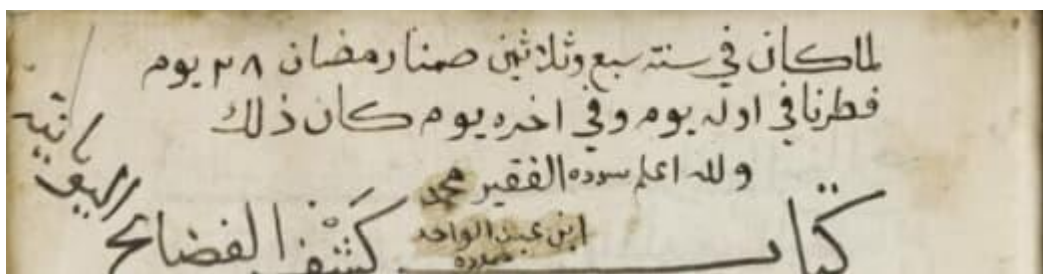 لما كان في سنة سبع وثلاثين صمنا رمضان ٢٨ يوم
فطرنا في اوله يوم وفي اخره يوم كان ذلك
ولله اعلم سوده الفقير محمد
ابن عبد الواحد
كتاب كشف الفضائح اليونانية